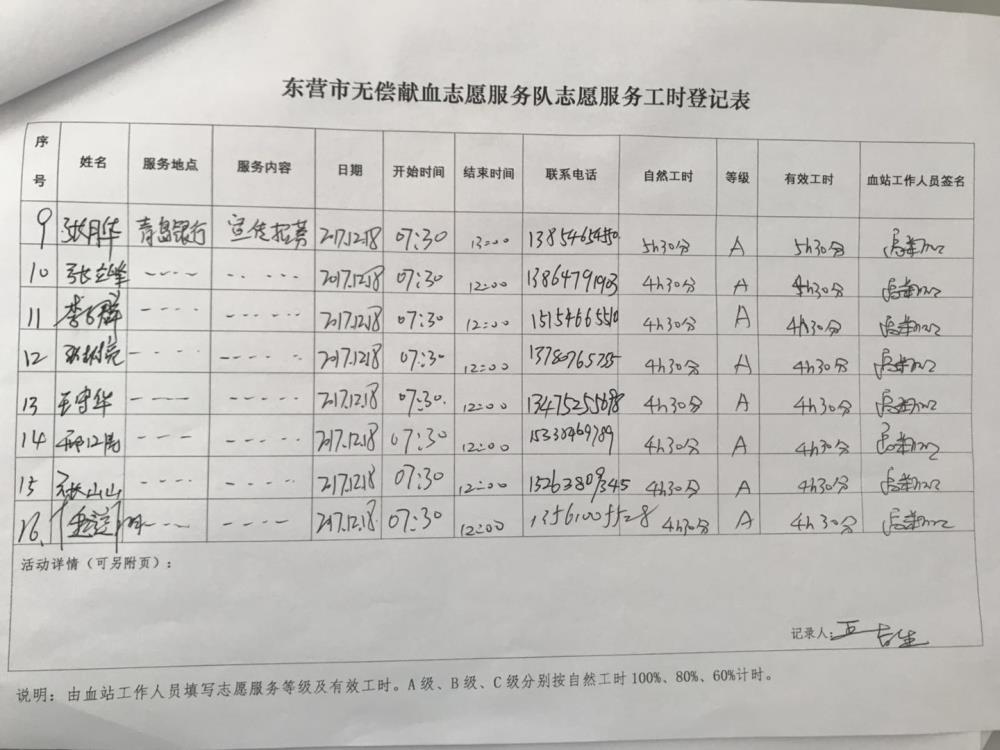 东营市无偿献血志愿服务队志愿服务工时登记表
序号 姓名 服务地点 服务内容 日期 开始时间 结束时间 联系电话 自然工时 等级 有效工时 血站工作人员签名
9 张月华 青岛银行 宣传招募 2017.12.18 07:30 13:00 5h30分 A 5h30分
10 张立峰 2017.12.18 07:30 12:00 13864791903 4h30分 A 4h30分
11 2017.12.18 07:30 12:00 15154665510 4h30分 A 4h30分
12 2017.12.18 07:30 12:00 13780765755 4h30分 A 4h30分
13 王守华 2017.12.18 07:30 12:00 13475255698 4h30分 A 4h30分
14 2017.12.18 07:30 12:00 15330469789 4h30分 A 4h30分
15 张山山 2017.12.18 07:30 12:00 15263809345 4h30分 A 4h30分
16. 2017.12.18 07:30 12:00 13561005528 4h30分 A 4h30分
活动详情（可另附页）：
记录人：
说明：由血站工作人员填写志愿服务等级及有效工时。A级、B级、C级分别按自然工时100%、80%、60%计时。